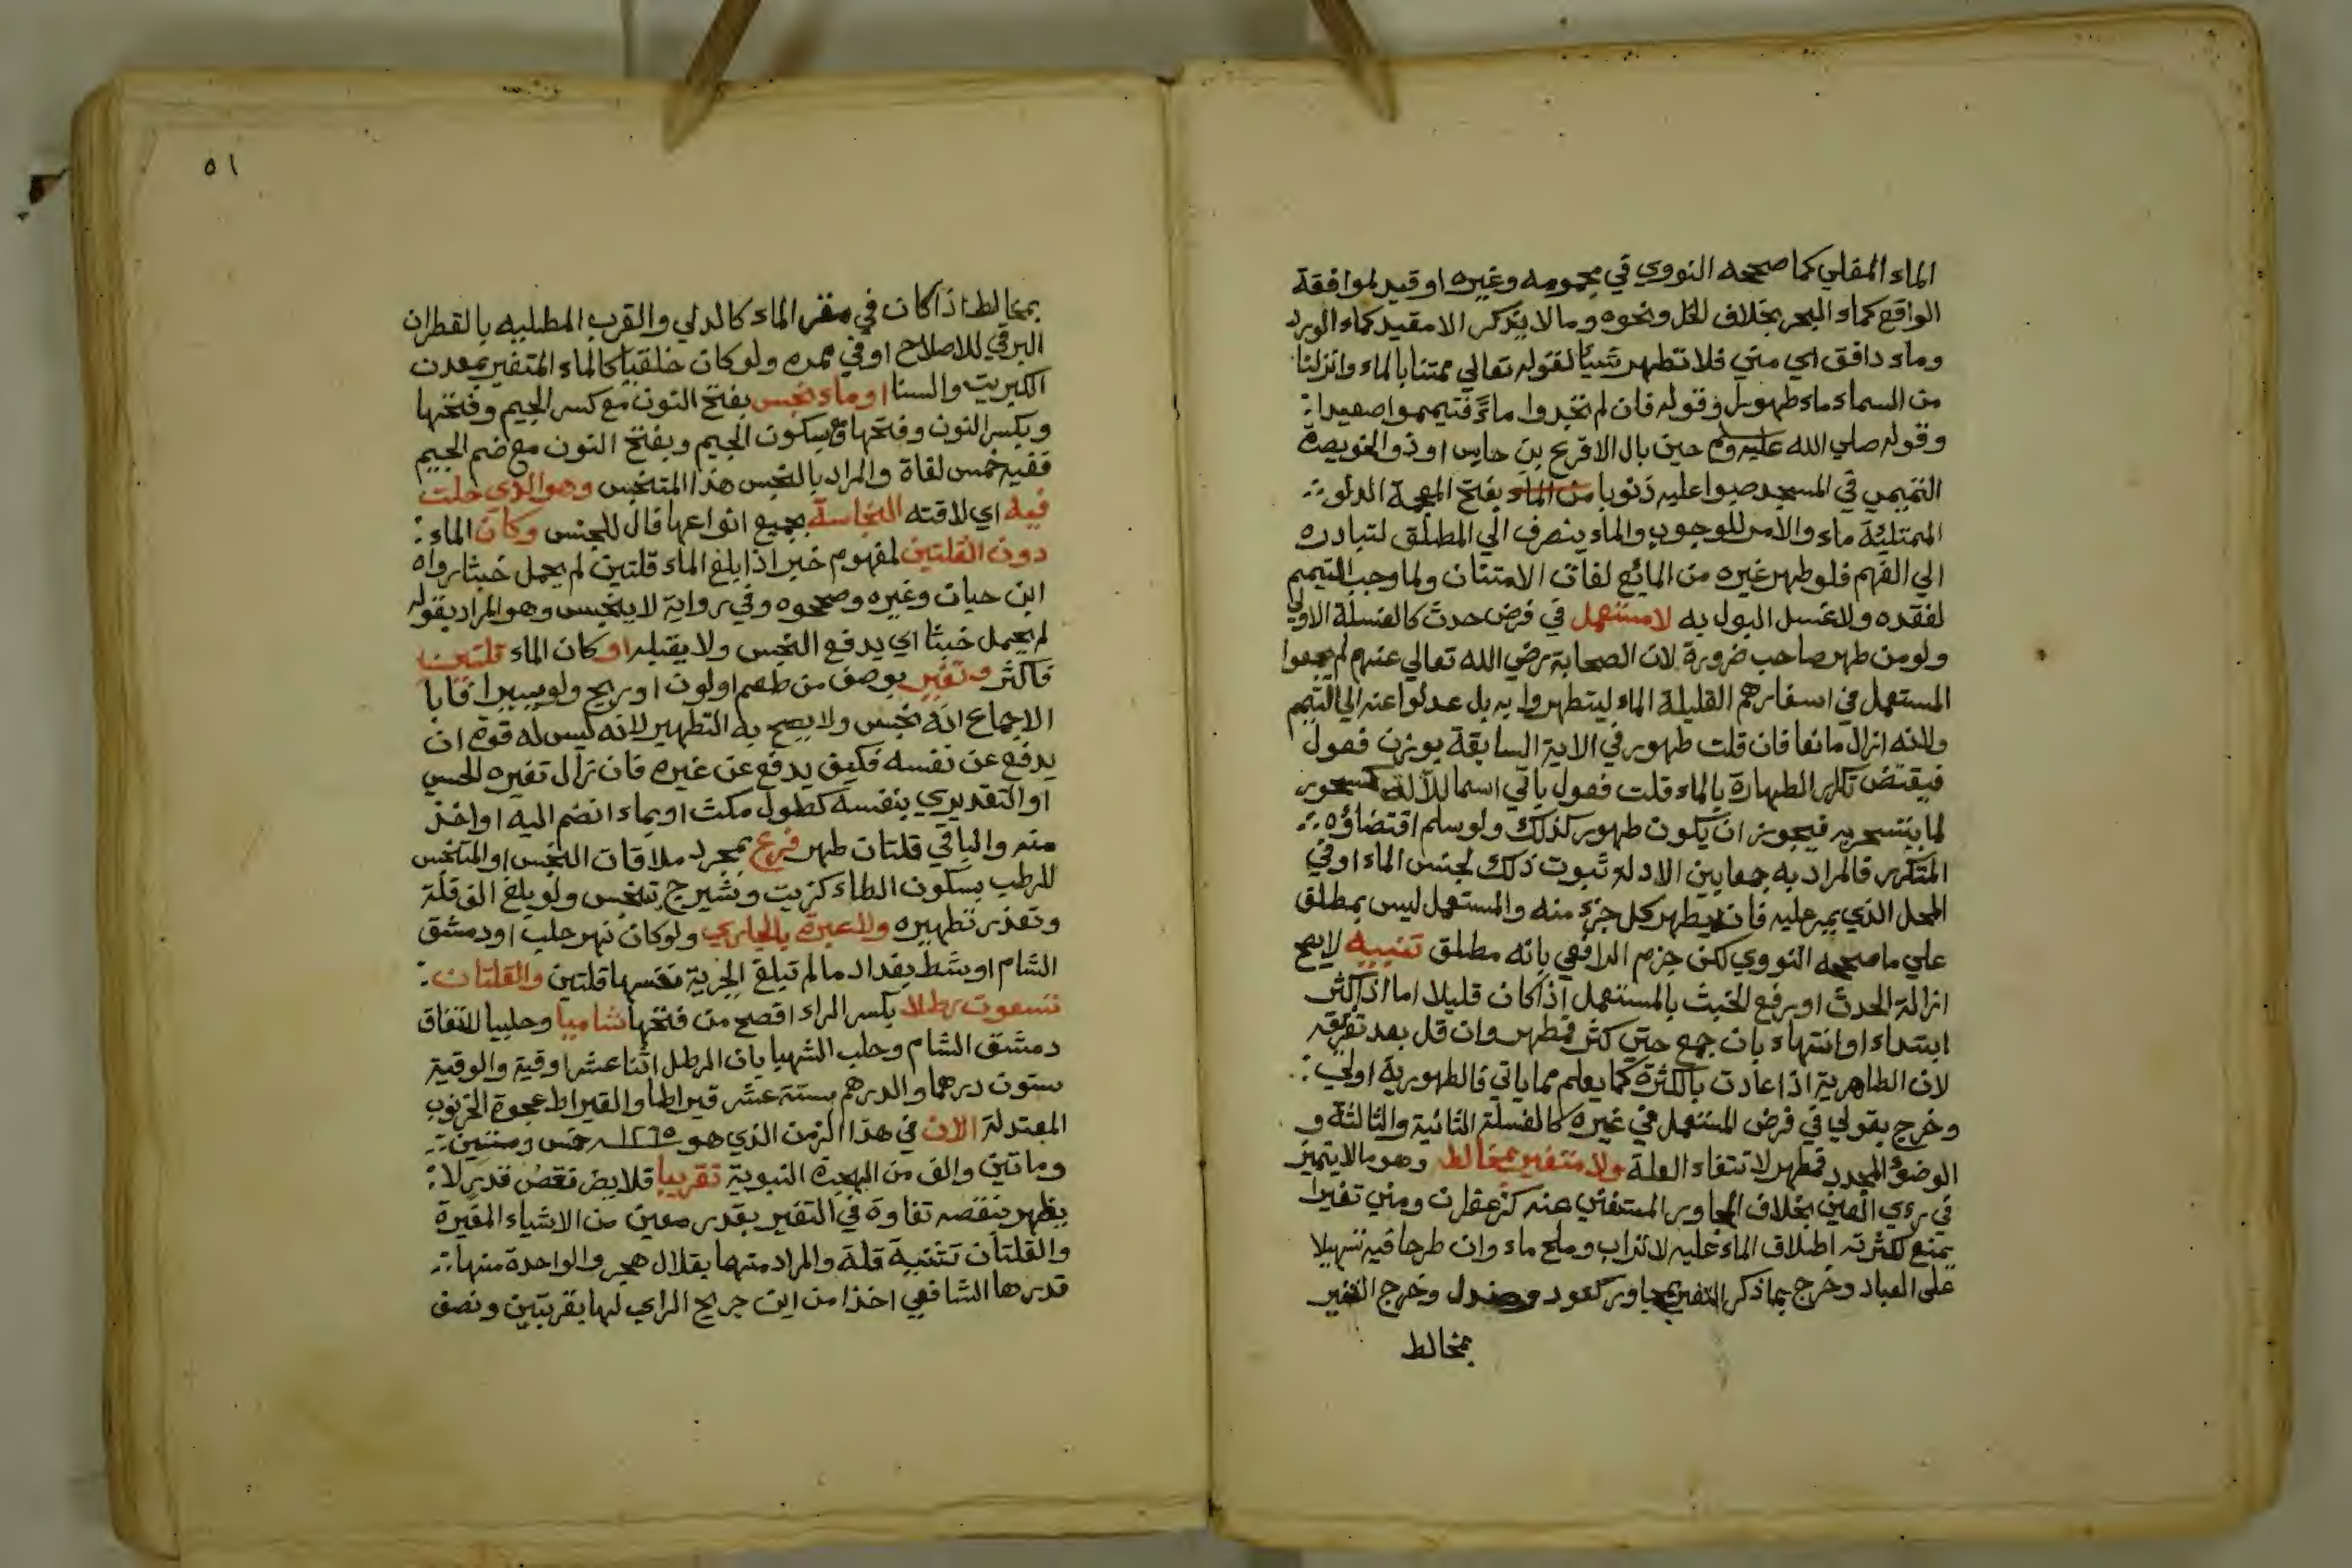 الماء المغلي كما صححه النووي في مجموعه وغيره او قيد لموافقة
الواقع كماء البحر بخلاف الخل ونحوه وما لا يذكر الا مقيد كماء الورد
وماء دافق اي مني فلا تطهر شيئا لقوله تعالي ممتنا بالماء وانزلنا
من السماء ماء طهورا وقوله فان لم تجدوا ماءً فتيمموا صعيدا
وقوله صلي الله عليه وم حين بال الاقرع بن حابس او ذو الخويصرة
التميمي في المسجد صبوا عليه ذنوبا من الماء بفتح المعجمة الدلو
الممتلئة ماء والامر للوجوب والماء ينصرف الي المطلق لتبادره
الي الفهم فلو طهر غيره من المائع لفات الامتنان ولما وجب التيمم
لفقده ولا غسل البول به لا مستعمل في فرض حدث كالغسلة الاولي
ولو من طهر صاحب ضرورة لان الصحابة رضي الله تعالي عنهم لم يجمعوا
المستعمل في اسفارهم القليلة الماء ليتطهروا به بل عدلوا عنه الي التيمم
ولانه ازال مانعا فان قلت طهور في الاية السابقة بوزن فعول
فيقتض تكرر الطهارة بالماء قلت فعول ياتي اسما للآلة كسحور
لما يتسحر به فيجوز ان يكون طهور كذلك ولو سلم اقتضاؤه
المتكرر فالمراد به جمعا بين الادلة ثبوت ذلك لجنس الماء او في
المحل الذي يمر عليه فانه يطهر كل جزء منه والمستعمل ليس بمطلق
علي ما صححه النووي لكن جزم الرافعي بانه مطلق تنبيه لا يصح
ازالة الحدث او برفع الخبث بالمستعمل اذا كان قليلا اما اذا كثر
ابتداء او انتهاء بان جمع حتي كثر فمطهر وان قل بعد تفريقه
لان الطاهرية اذا عادت بالكثرة كما يعلم مما ياتي فالطهورية اولي
وخرج بقولي في فرض المستعمل في غيره كالغسلة الثانية والثالثة و
الوضوء المجدد فمطهر لانتفاء العلة ولا متغير بمخالط وهو ما لا يتميز
في رءي العين بخلاف المجاور المستغني عنه كزعفران ومني تغيرا
يمنع لكثرته اطلاق الماء عليه لا تراب وملح ماء وان طرحا فيه تسهيلا
على العباد وخرج بما ذكر التغير بمجاور كعود وصندل وخرج التغير
بمخالط
٥١
بمخالط اذا كان في مقر الماء كالدلي والقرب المطلية بالقطران
البرقي للاصلاح او في ممره ولو كان خلقيا كالماء المتغير بمعدن
الكبريت والسنا او ماء نجس بفتح النون مع كسر الجيم وفتحها
وبكسر النون وفتحها مع سكون الجيم وبفتح النون مع ضم الجيم
ففيه خمس لغاة والمراد بالنجس هذا المتنجس وهو الذي حلت
فيه اي لاقته النجاسة بجميع انواعها فال للجنس وكان الماء
دون القلتين لمفهوم خبر اذا بلغ الماء قلتين لم يحمل خبثا رواه
ابن حيان وغيره وصححوه وفي رواية لا ينجس وهو المراد بقوله
لم يحمل خبثا اي يدفع النجس ولا يقبله او كان الماء قلتين
فاكثر وتغير بوصف من طعم او لون او ريح ولو يسيرا
الاجماع انه نجس ولا يصح به التطهير لانه ليس له قوة ان
يدفع عن نفسه فكيف يدفع عن غيره فان زال تغيره الحسي
او التقديري بنفسه كطول مكث او بماء انضم اليه او اخذ
منه والباقي قلتان طهر فرع بمجرد ملاقات النجس او المتنجس
للرطب بسكون الطاء كزيت وشيرج تنجس ولو بلغ الف قلة
وتعذر تطهيره ولا عبرة بالجاري ولو كان نهر حلب او دمشق
الشام او شط بغداد ما لم تبلغ الجرية نفسها قلتين والقلتان
تسعون رطلا بكسر الراء افصح من فتحها شاميا وحلبيا لاتفاق
دمشق الشام وحلب الشهبا بان الرطل اثنا عشر اوقية والوقية
ستون درهما والدرهم ستة عشر قيراطا والقيراط عجوة الخرنوب
المعتدلة الان في هذا الزمن الذي هو ١٢٦٥ خمس وستين
وماتين والف من الهجرة النبوية تقريبا فلا يضر نقص قدر لا
يظهر بنقصه تفاوة في التغير بقدر معين من الاشياء المغيرة
والقلتان تثنية قلة والمراد منهما بقلال هجر والواحدة منها
قدرها الشافعي اخذا من ابن جريج الراي لها بقربتين ونصف